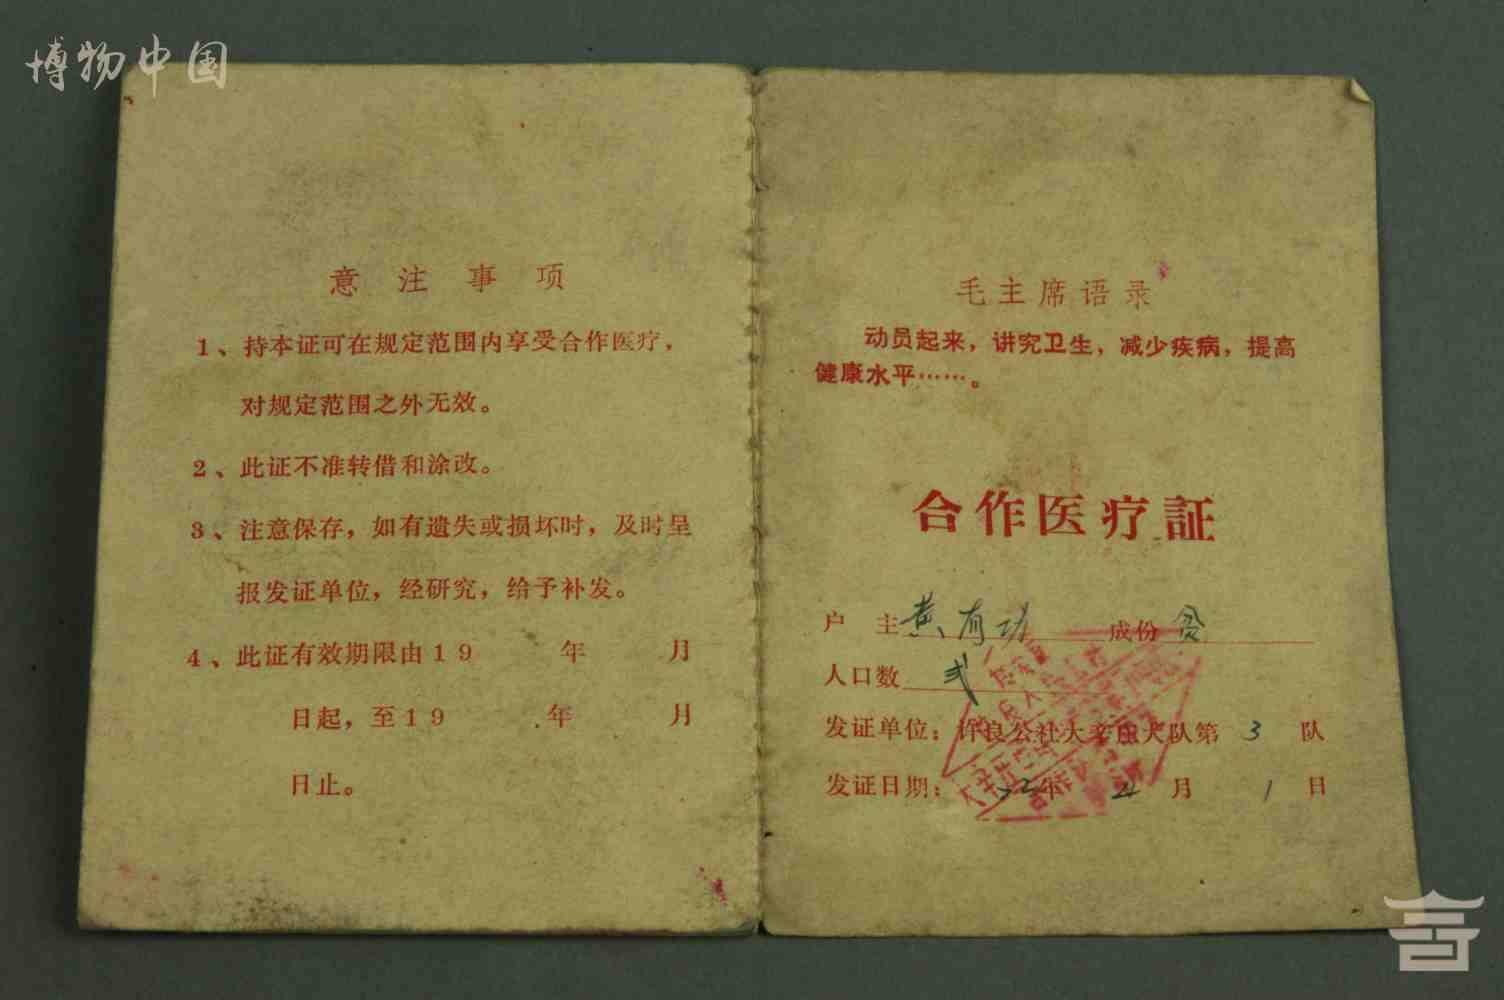 博物中国
意 注 事 项
1、持本证可在规定范围内享受合作医疗，
对规定范围之外无效。
2、此证不准转借和涂改。
3、注意保存，如有遗失或损坏时，及时呈
报发证单位，经研究，给予补发。
4、此证有效期限由19 年 月
日起，至19 年 月
日止。
毛主席语录
动员起来，讲究卫生，减少疾病，提高
健康水平……。
合作医疗証
户 主 黄有功 成份 贫
人口数 弍
发证单位：许良公社大辛庄大队第 3 队
发证日期： 72年 4 月 1 日